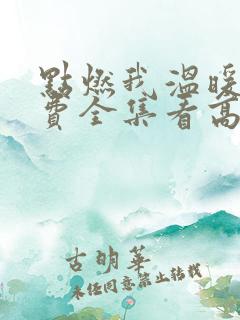 點燃我溫暖
費全集看高
古明華
未經同意禁止轉載